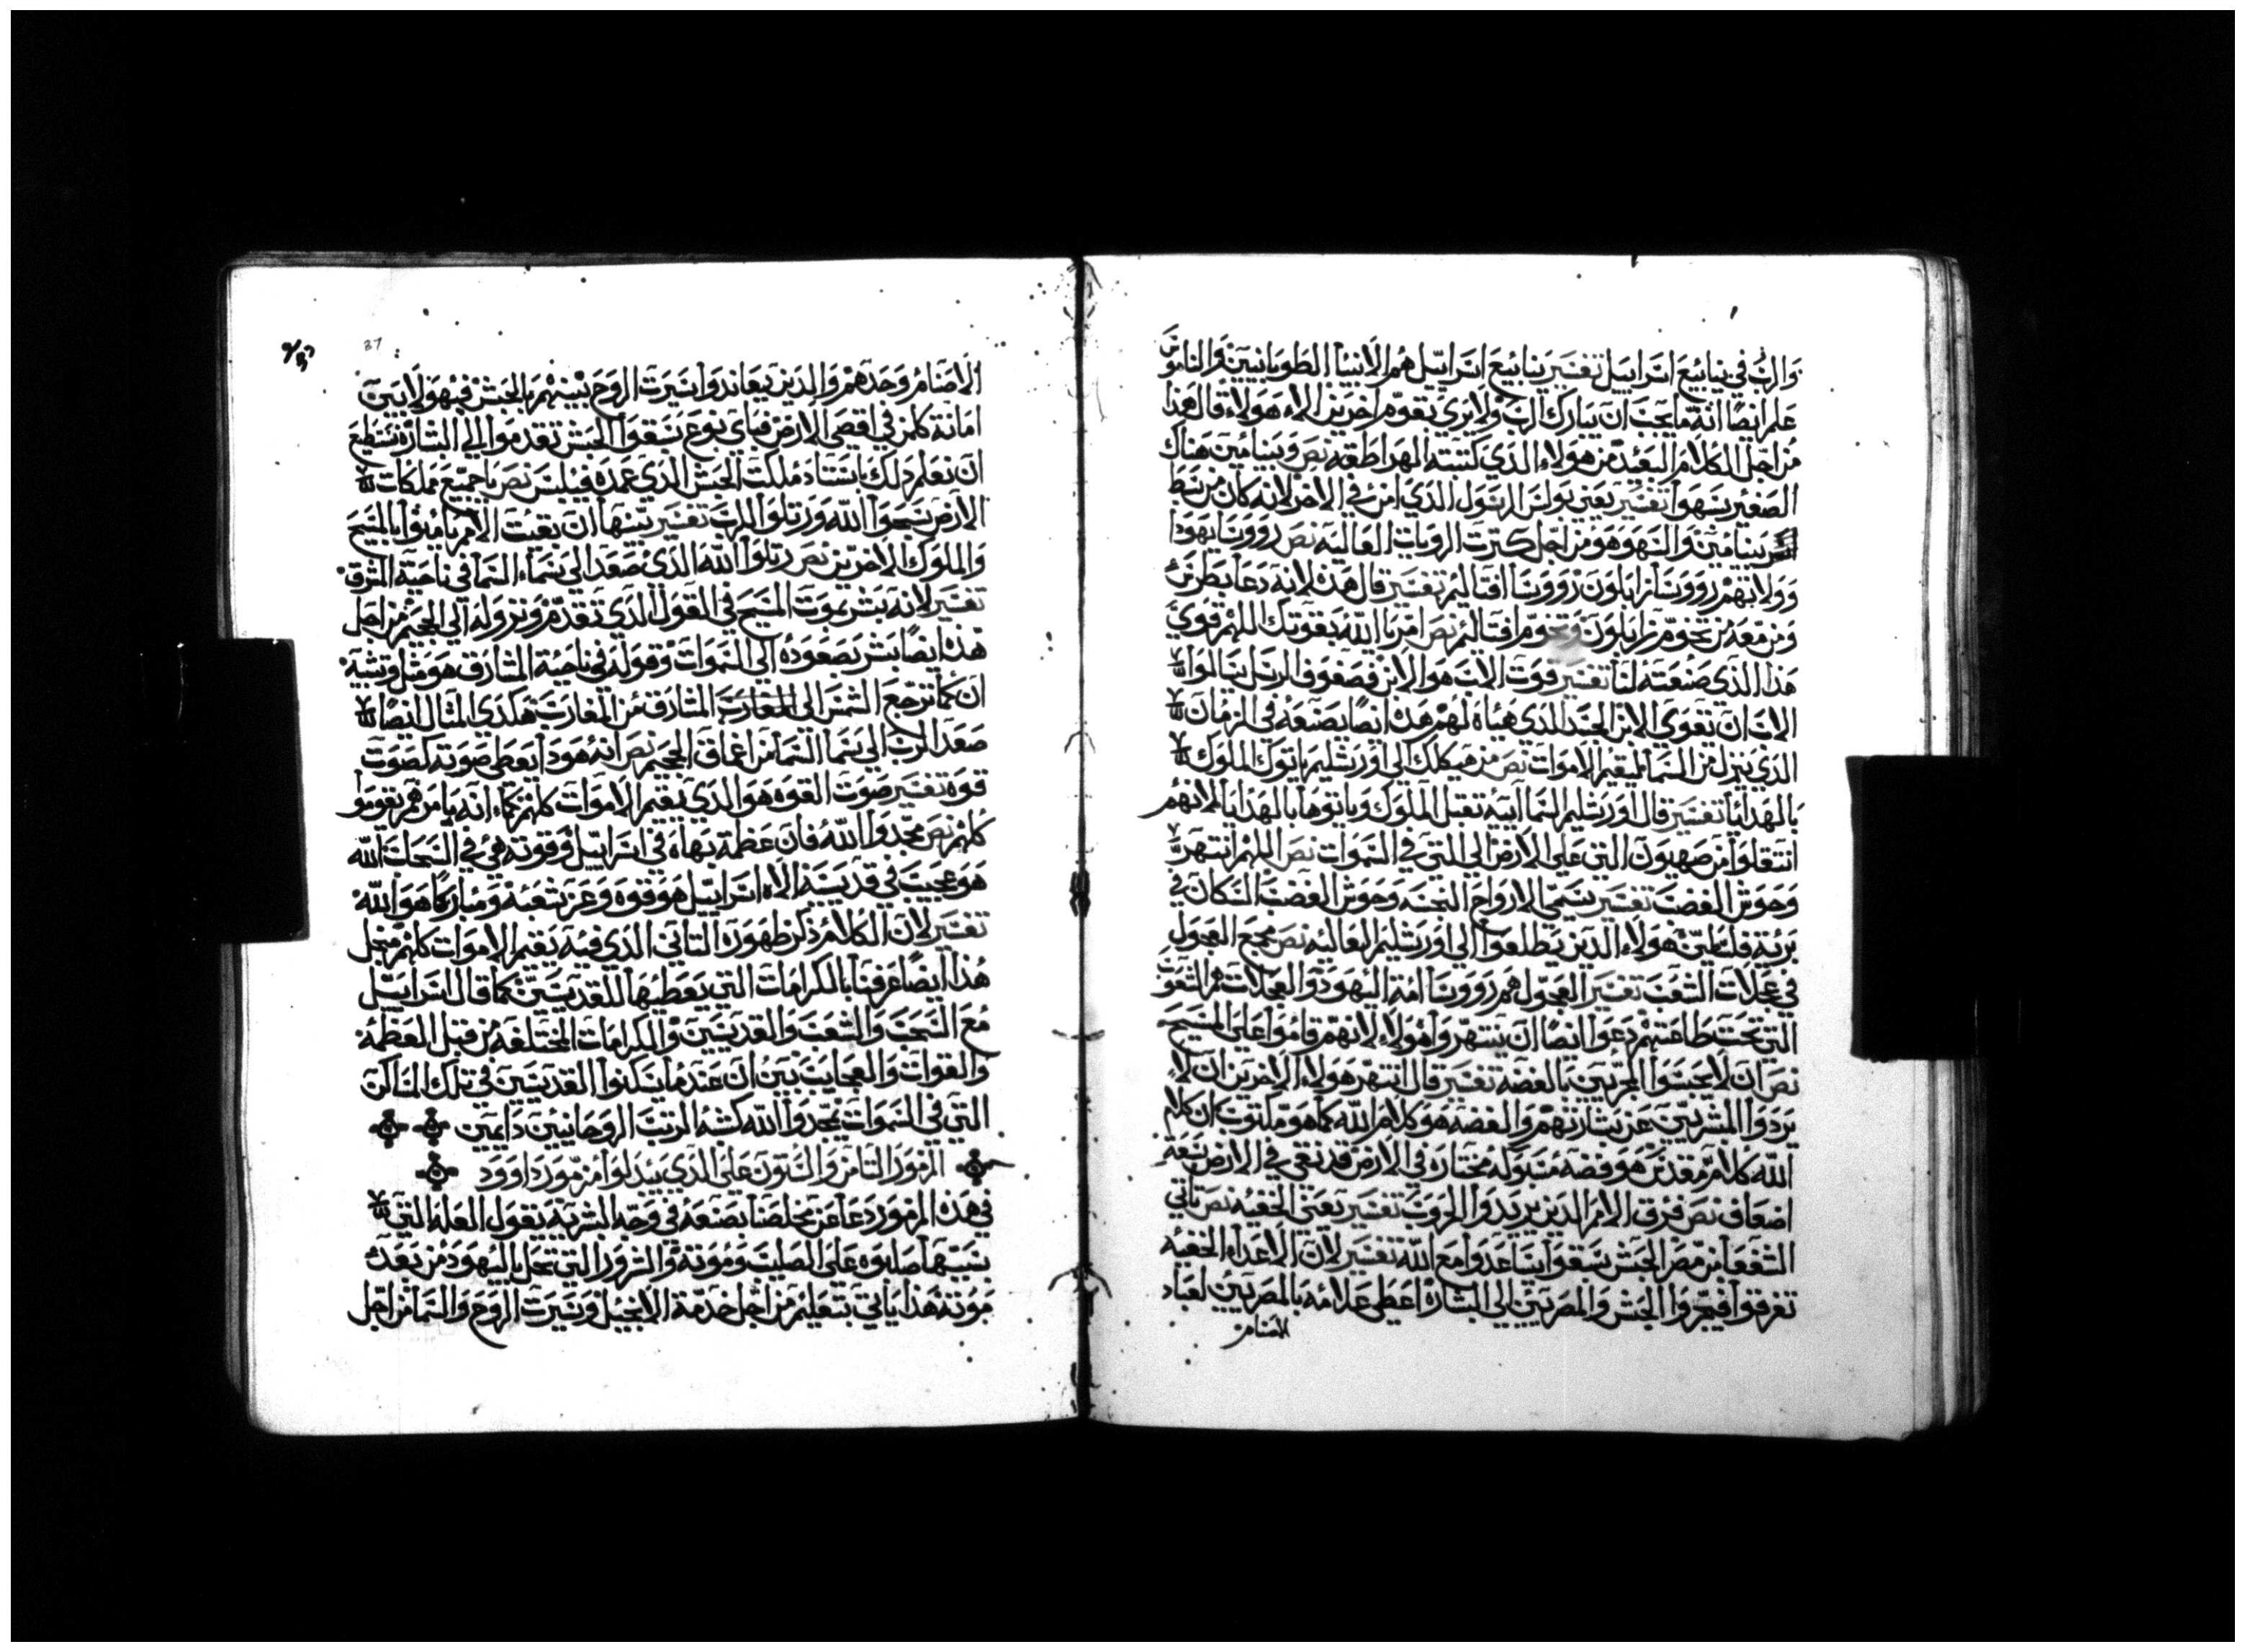 والرب في ينابيع اسراييل تفسير ينابيع اسراييل هم الانبيا الطوبانيين والناموس
علم ايضا انه ما يجب ان يبارك الرب ولا يرى تقوم اخرين الا هولاء قال هذا
من اجل الكلام البعيد من هولاء الذي كتبته الهراطقه نص وبنيامين هناك
الصغير بسهوا تفسير يعني بولس الرسول الذي امن في الاخر لانه كان من سبط
بنيامين والسهو هو من اجل كترت الرويات العاليه نص رووسا يهودا
وولاتهم رووسا زابلون رووسا افتاليم تفسير قال هذه لانه دعا بطرس
ومن معه من تخوم زابلون وتخوم افتاليم نص امر يا الله بقوتك اللهم قوي
هذا الذي صنعته لنا تفسير قوت الاب هو الابن فصفوف الرسل يسالوا
الاب ان يقوي الابن الجسد الذي هياه لهم هذه ايضا يصنعه في الزمان
الذي ينزل من السما ليقيم الاموات نص من هيكلك الى اورشليم ياتوك الملوك
بالهدايا تفسير قال اورشليم السماايية تقبل الملوك وياتوها بالهدايا لانهم
انتقلوا من صهيون التي على الارض الى التي في السموات نص اللهم انتهر
وحوش القصب تفسير يسمي الارواح النجسه وحوش القصب السكان في
برية فلسطين هولاء الذين يتطلعوا الى اورشليم العاليه نص مجمع العجول
في عجلات الشعب تفسير العجول هم رووسا امة اليهود والعجلات هم الشعوب
التي تحت طاعتهم دعوا ايضا ان ينتهروا هولاء لانهم قاموا على المسيح
نص ان لا يحبسوا المجربين بالفضه تفسير قال انتهر هولاء الاخرين ان لا
يردوا المبشرين عن بشارتهم والفضه هو كلام الله كما هو مكتوب ان كلام
الله كلام مقدس هو فضه مسبوكه مختاره في الارض قد نقي في الارض سبعة
اضعاف نص فرق الامم الذين يريدوا الحروب تفسير يعني الخفيه نص ياتي
الشفعا من مصر الحبش يسبقوا يساعدوا مع الله تفسير لان الاعداء الخفيه
تفرقوا فبحروا الحبش والمصريين الى البشارة اعطى علامه بالمصريين لعباد
الاصنام
37
الاصنام وحدهم والذين يعاندوا سيرت الروح بينهم بالحبش فيهو لا يبين
امانة كلمن في اقصى الارض فباي نوع يسبقوا الحبش تقدموا الى البشارة نستطيع
ان نعلم ذلك باستناد ملكت الحبش الذي عمده فيلبس نص يا جميع مملكات
الارض سبحوا الله ورتلوا للرب تفسير ينبها ان بقيت الامم يامنوا بالمسيح
والملوك الاخرين نص رتلوا الله الذي صعد الى سماء السما في ناحية المشرق
تفسير لانه بشر بموت المسيح في القول الذي تقدم ونزوله الى الجحيم من اجل
هذه ايضا بشر بصعوده الى السموات وقوله في ناحية المشارق هو مثل وتشبيه
ان كما ترجع الشمس الى المغارب المشارق من المغارب هكذي المثال ايضا
صعد الرب الى سما السما من اعماق الجحيم نص انه هودا يعطي صوته كصوت
قوة تفسير صوت القوه هو الذي يقيم الاموات كلهم كماء انه يامرهم يقوموا
كلهم نص مجدوا الله فان عظمة بهاه في اسراييل وقوته هي في السحاب الله
هو عجيب في قديسيه الاه اسراييل هو قوه وعز شعبه ومباركا هو الله
تفسير لان الكلام ذكر ظهوره التاني الذي فيه يقيم الاموات كلهم من اجل
هذا ايضا عرفنا بالكرامات التي يعطيها للقديسين كما قال اسراييل
مع السحب والشعب والقديسين والكرامات المختلفه من قبل العظمه
والقوات والعجايب نبين ان عندما يسكنوا القديسين في تلك المساكن
التي في السموات يمجدوا الله كشبه الرتب الروحانيين دايمين
المزمور التامن والستون على الذي يبدلوا مزمور داوود
في هذه المزمور دعا عن مخلصنا يصنعه في وجه البشريه يقول العله التي
بسببها صلبوه على الصليب وموته والشرور التي تحل باليهود من بعد
موته هذا ياتي بتعليم من اجل خدمة الانجيل وسيرت الروح والسما من اجل